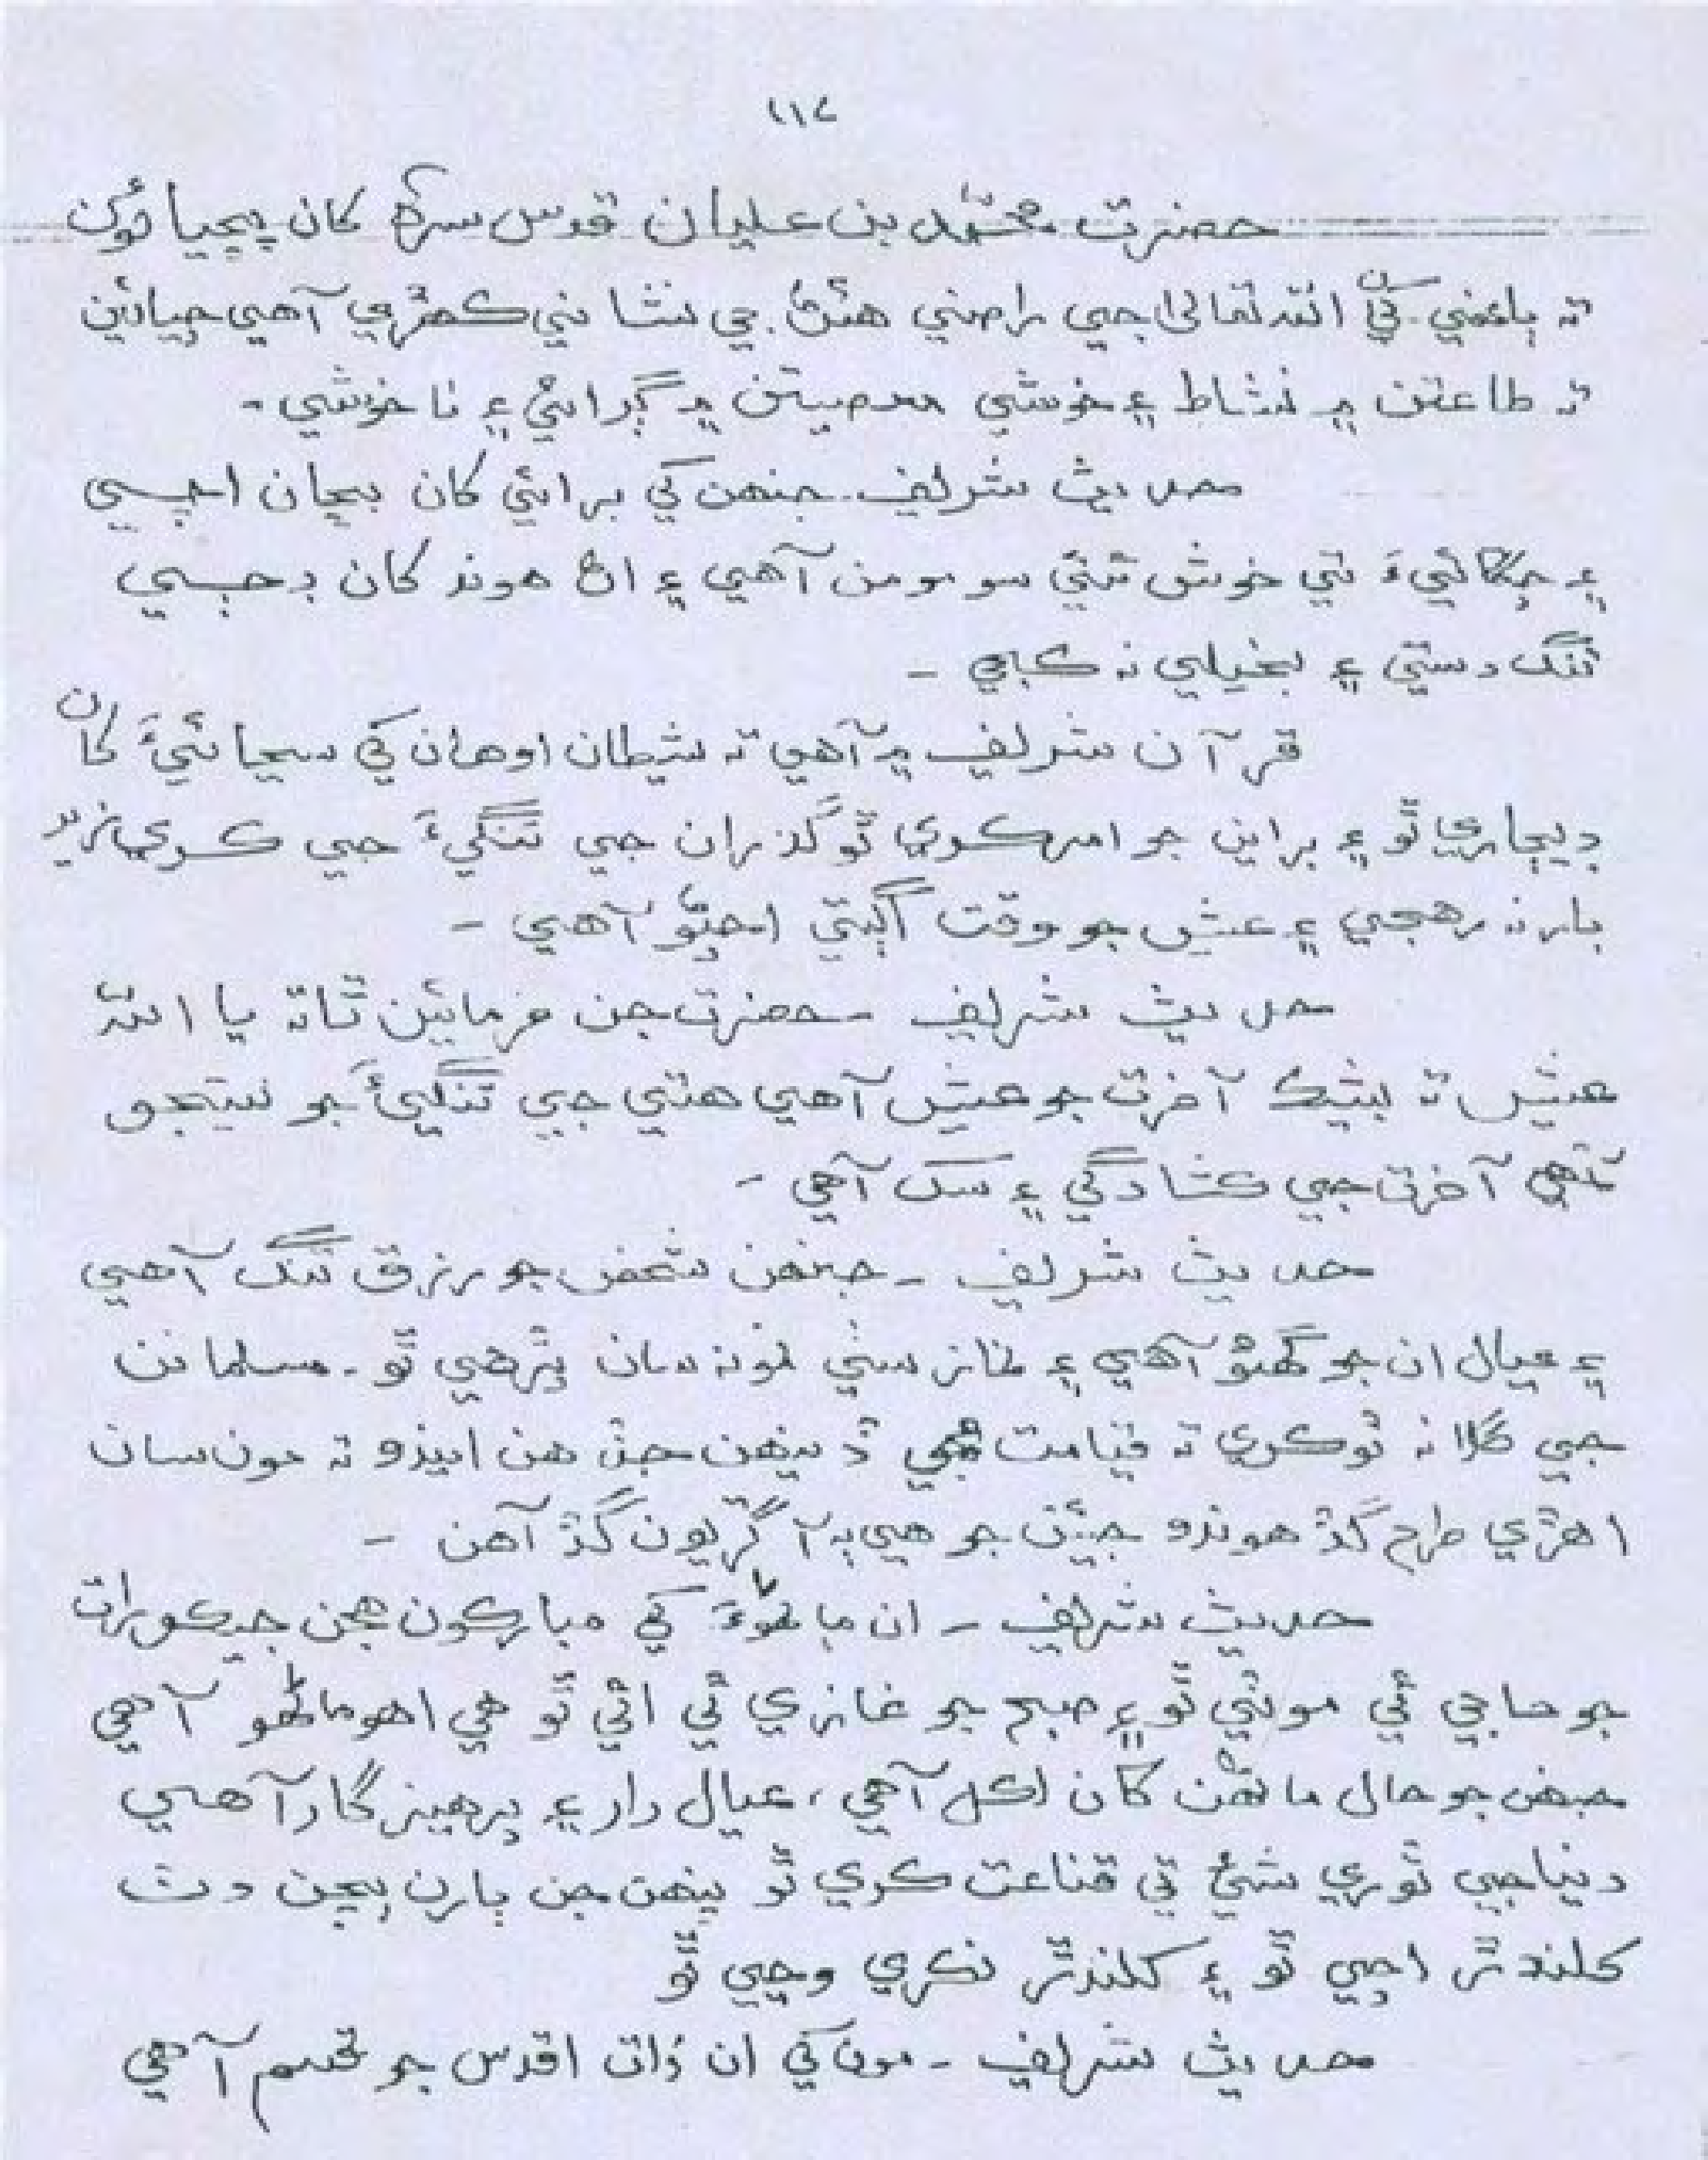 ١١٧
حضرت محمّد بن عليان قدس سره کان پڇيائون
ته باطني کن الله تعالیٰ جي راضي هئڻ جي نشاني ڪهڙي آهي چيائين
ته طاعتن ۾ نشاط ۽ خوشي معصيتن ۾ گرائي ۽ نا خوشي -
حديث شريف - جنهن کي برائي کان بڇان اچي
۽ چڱائيءَ تي خوش ٿئي سو مومن آهي ۽ اڻ هوند کان ڊڄي
تنگ دستي ۽ بخيلي نه ڪجي -
قرآن شريف ۾ آهي ته شيطان اوهان کي سچائيءَ کان
ڊيڄاري ٿو ۽ براين جو امر ڪري ٿو گذران جي تنگيءَ جي ڪري
بار نه رهجي ۽ عيش جو وقت اڳتي اچڻو آهي -
حديث شريف - حضرت جن فرمائين ٿا ته يا الله
عيش ته بيشڪ آخرت جو عيش آهي هتي جي تنگيءَ جو نتيجو
آخرت جي ڪشادگي ۽ سک آهي -
حديث شريف - جنهن شخص جو رزق تنگ آهي
۽ عيال ان جو گهڻو آهي ۽ نماز سٺي نموني سان پڙهي ٿو - مسلمانن
جي گلا نه ٿو ڪري ته قيامت جي ڏينهن جڏهن ايندو ته مون سان
اهڙي طرح گڏ هوندو جيئن جو هي ٻه آڱريون گڏ آهن -
حديث شريف - ان ماڻهوءَ کي مبارڪون هجن جيڪو رات
جو حاجي ٿي موٽي ٿو ۽ صبح جو غازي ٿي اٿي ٿو هي اهو ماڻهو آهي
جنهن جو حال ماڻهن کان لڪل آهي، عيال دار ۽ پرهيزگار آهي
دنيا جي ٿوري شيءِ تي قناعت ڪري ٿو پنهنجن ٻارن ٻچن وٽ
کلندڙ اچي ٿو ۽ کلندڙ نڪري وڃي ٿو
حديث شريف - مون کي ان ذات اقدس جو قسم آهي